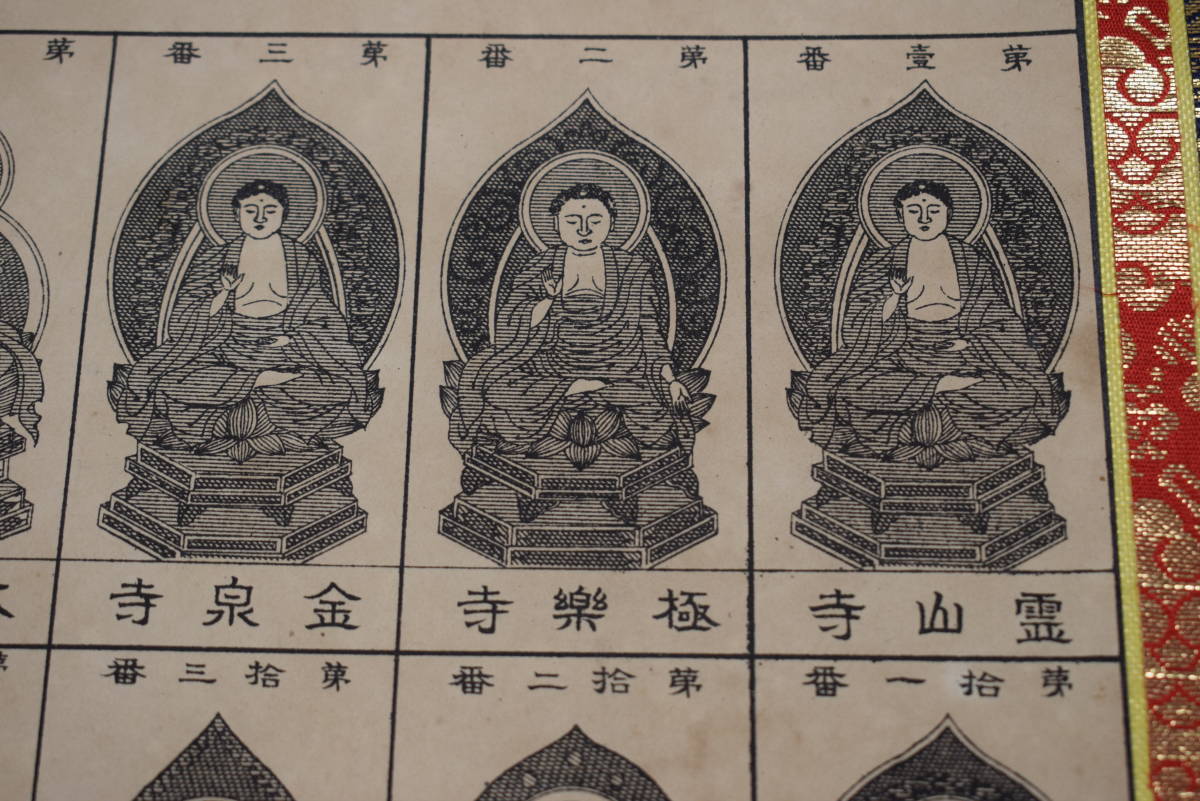 第壹番
霊山寺
第二番
極樂寺
第三番
金泉寺
第
第拾一番
第拾二番
第拾三番